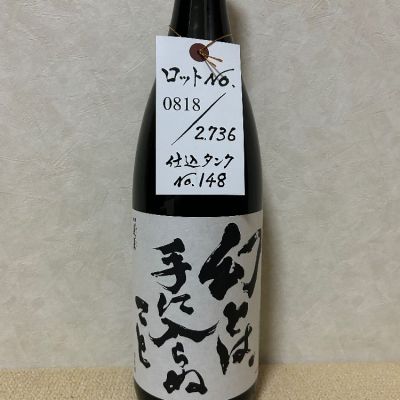 ロットNo.
0818
/2.736
仕込タンク
No.148
幻とは、
手に入らぬ
こと